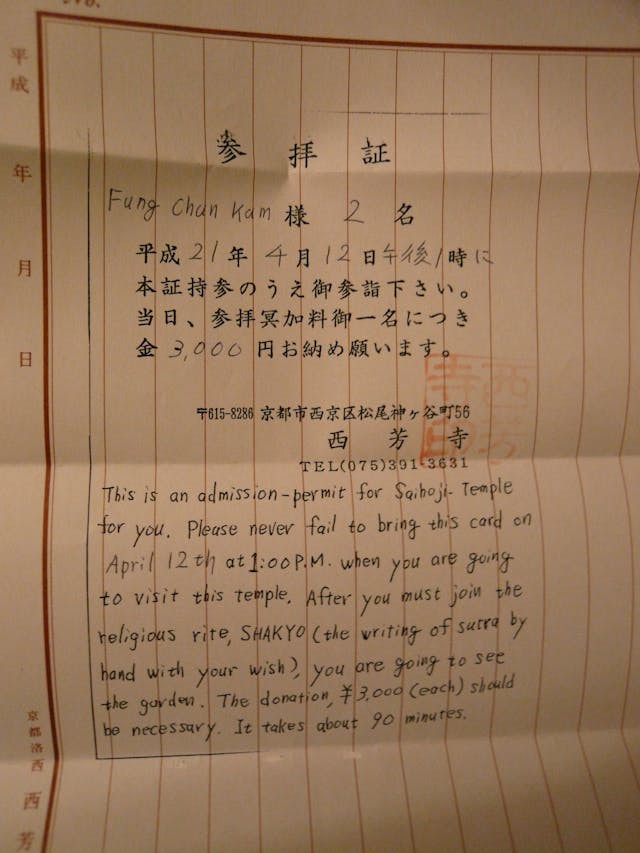 平成 年 月 日
参拝証
Fung Chan Kam 様 2 名
平成 21年 4月 12日午後1時に
本証持参のうえ御参詣下さい。
当日、参拝冥加料御一名につき
金 3,000 円お納め願います。
〒615-8286 京都市西京区松尾神ヶ谷町56
西芳寺
TEL(075)391-3631
西芳
寺印
This is an admission-permit for Saihoji-Temple
for you. Please never fail to bring this card on
April 12th at 1:00 P.M. when you are going
to visit this temple. After you must join the
religious rite, SHAKYO (the writing of sutra by
hand with your wish), you are going to see
the garden. The donation, ¥3,000 (each) should
be necessary. It takes about 90 minutes.
京都洛西 西芳